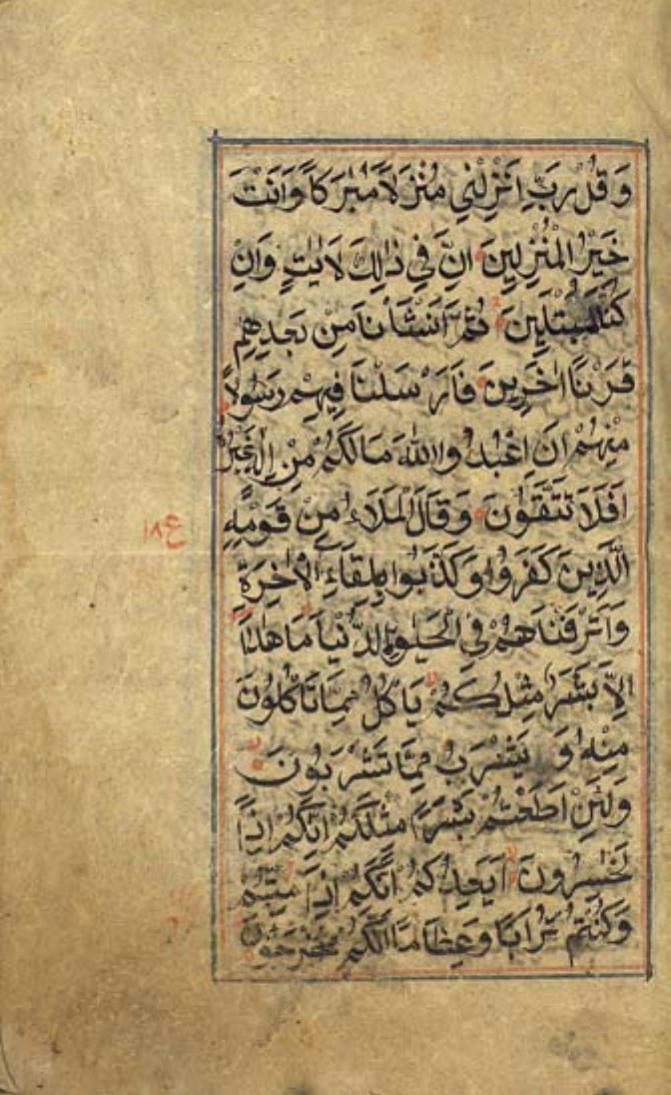 وَقُلْ رَبِّ اَنْزِلْنِي مُنْزَلًا مُبٰرَكًا وَاَنْتَ
خَيْرُ الْمُنْزِلِينَ اِنَّ فِي ذٰلِكَ لَاٰيٰتٍ وَاِنْ
كُنَّا لَمُبْتَلِينَ ثُمَّ اَنْشَأْنَا مِنْ بَعْدِهِمْ
قَرْنًا اٰخَرِينَ فَاَرْسَلْنَا فِيهِمْ رَسُولًا
مِنْهُمْ اَنِ اعْبُدُوا اللّٰهَ مَا لَكُمْ مِنْ اِلٰهٍ غَيْرُهُ
اَفَلَا تَتَّقُونَ وَقَالَ الْمَلَاءُ مِنْ قَوْمِهِ
الَّذِينَ كَفَرُوا وَكَذَّبُوا بِلِقَاءِ الْاٰخِرَةِ
وَاَتْرَفْنٰهُمْ فِي الْحَيٰوةِ الدُّنْيَا مَا هٰذَا
اِلَّا بَشَرٌ مِثْلُكُمْ يَاْكُلُ مِمَّا تَاْكُلُونَ
مِنْهُ وَ يَشْرَبُ مِمَّا تَشْرَبُونَ
وَلَئِنْ اَطَعْتُمْ بَشَرًا مِثْلَكُمْ اِنَّكُمْ اِذًا
لَخٰسِرُونَ اَيَعِدُكُمْ اَنَّكُمْ اِذَا مِتُّمْ
وَكُنْتُمْ تُرَابًا وَعِظَامًا اَنَّكُمْ مُخْرَجُونَ
ع ١٨